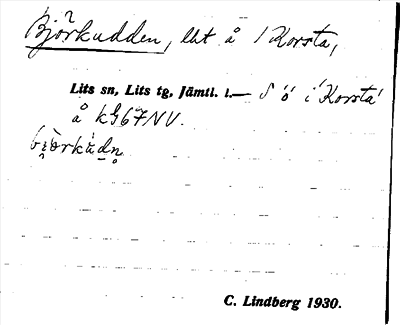 Björkudden, lät å 1 Korsta,
Lits sn, Lits tg, Jämtl. l.— S ö i 'Korsta'
å k 67NV.
C. Lindberg 1930.